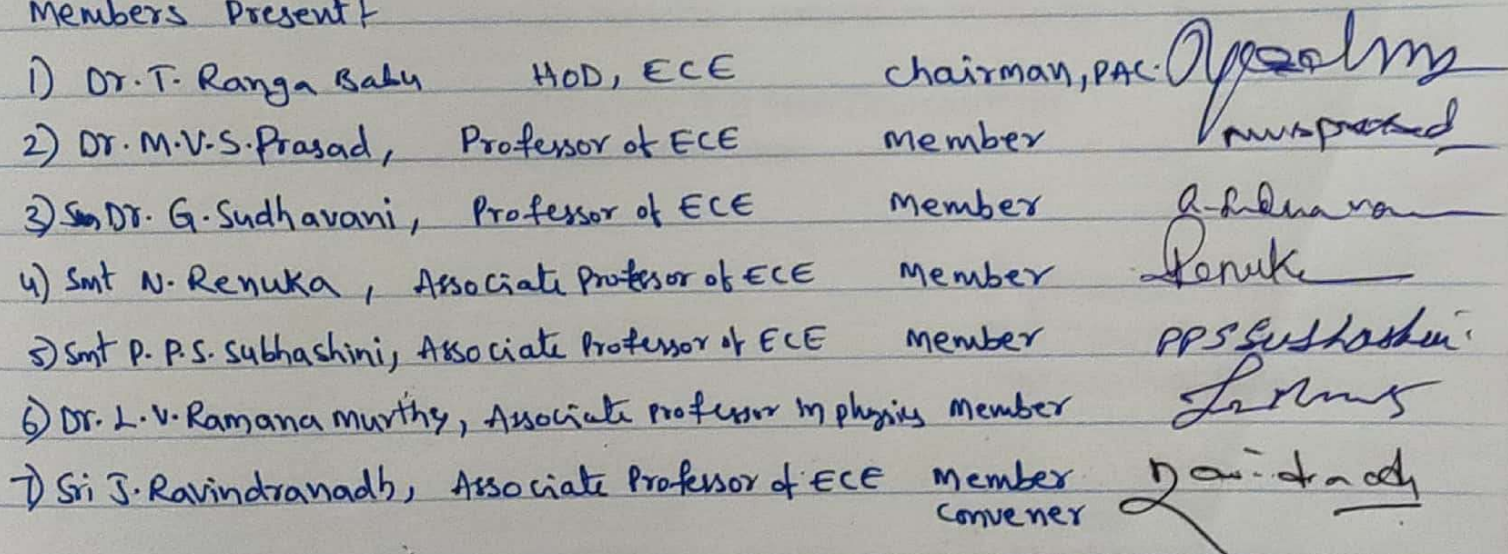 Members Present:
1) Dr. T. Ranga Babu HOD, ECE Chairman, PAC.
2) Dr. M.V.S. Prasad, Professor of ECE Member mvsprasad
3) Dr. G. Sudhavani, Professor of ECE Member
4) Smt N. Renuka, Associate Professor of ECE Member Renuk
5) Smt P. P. S. Subhashini, Associate Professor of ECE Member PPS Subhashini
6) Dr. L. V. Ramana Murthy, Associate Professor in physics Member
7) Sri J. Ravindranadh, Associate Professor of ECE Member
Convener